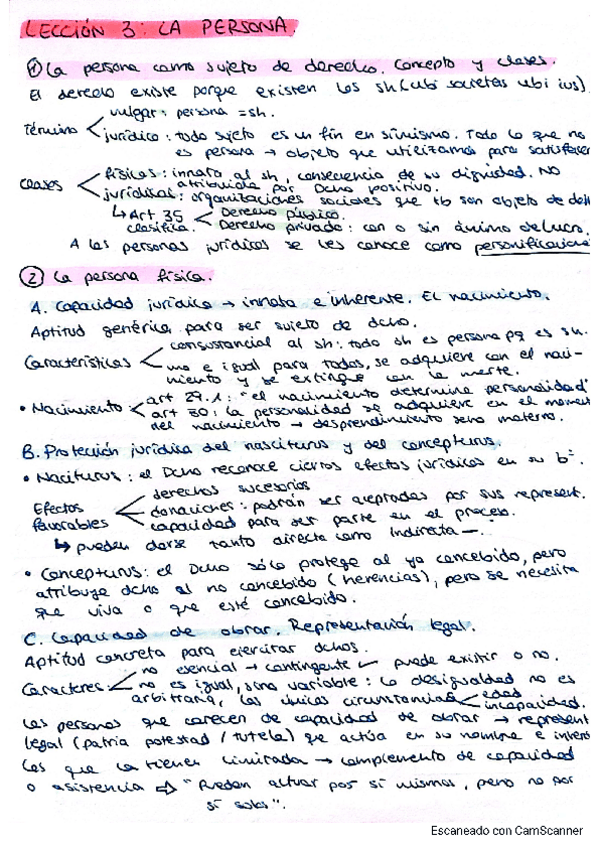 LECCIÓN 3: LA PERSONA.
① La persona como sujeto de derecho. Concepto y clases.
El derecho existe porque existen los sh (ubi societas ubi ius)
Término
vulgar: persona = sh.
jurídico: todo sujeto es un fin en si mismo. Todo lo que no
es persona → objeto que utilizamos para satisfacer
clases
físicas: innato al sh, consecuencia de su dignidad. NO
atribuida por Dcho positivo.
jurídicas: organizaciones sociales que tb son objeto de
↳ Art 35 clasifica.
Derecho público.
Derecho privado: con o sin ánimo de lucro.
A las personas jurídicas se les conoce como
② La persona física.
A. Capacidad jurídica → innata e inherente. El nacimiento.
Aptitud genérica para ser sujeto de dcho.
Características
consustancial al sh: todo sh es persona pq es sh.
una e igual para todas, se adquiere con el naci-
miento y se extingue con la muerte.
• Nacimiento
art 29.1: "el nacimiento determina personalidad"
art 30: la personalidad se adquiere en el
del nacimiento → desprendimiento seno materno.
B. Protección jurídica del nasciturus y del concepturus.
• Naciturus: el Dcho reconoce ciertos efectos jurídicos en su bº.
Efectos favorables
derechos sucesorios
donaciones: podrán ser aceptadas por sus represent.
capacidad para ser parte en el proceso.
↳ pueden darse tanto directa como indirecta —.
• Concepturus: el Dcho sólo protege al ya concebido, pero
atribuye dcho al no concebido (herencias), pero se necesita
que viva o que esté concebido.
C. Capacidad de obrar. Representación legal.
Aptitud concreta para ejercitar dchos.
Caracteres
no esencial → contingente puede existir o no.
no es igual, sino variable: la desigualdad no es
arbitraria, las únicas circunstancias
edad
incapacidad.
Las personas que carecen de capacidad de obrar → represent
legal (patria potestad / tutela) que actúa en su nombre e
Les que la tienen limitada → complemento de capacidad
o asistencia ⇒ "Pueden actuar por sí mismos, pero no por
sí solos".
Escaneado con CamScanner